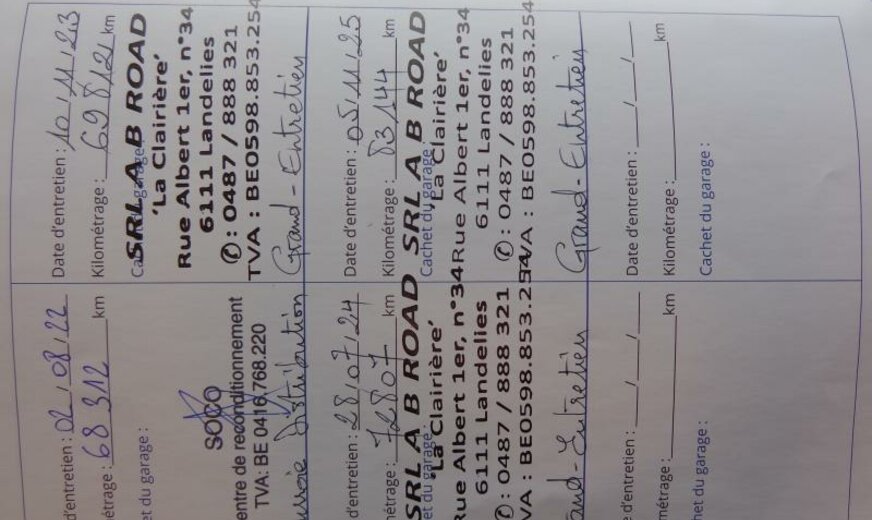 d'entretien : 02 / 08 / 22
métrage : 68 312 km
et du garage :
SOCO
entre de reconditionnement
TVA: BE 0416.768.220
Distribution
Date d'entretien : 10 / 11 / 23
Kilométrage : 69812 km
Cachet du garage :
SRL A B ROAD
'La Clairière'
Rue Albert 1er, n°34
6111 Landelies
✆ : 0487 / 888 321
TVA : BE0598.853.254
Grand-Entretien
d'entretien : 28 / 07 / 24
métrage : 72807 km
et du garage :
SRL A B ROAD
'La Clairière'
Rue Albert 1er, n°34
6111 Landelies
✆ : 0487 / 888 321
VA : BE0598.853.254
and-Entretien
Date d'entretien : 05 / 11 / 25
Kilométrage : 83144 km
Cachet du garage :
SRL A B ROAD
'La Clairière'
Rue Albert 1er, n°34
6111 Landelies
✆ : 0487 / 888 321
TVA : BE0598.853.254
Grand-Entretien
e d'entretien : / /
métrage : km
het du garage :
Date d'entretien : / /
Kilométrage : km
Cachet du garage :